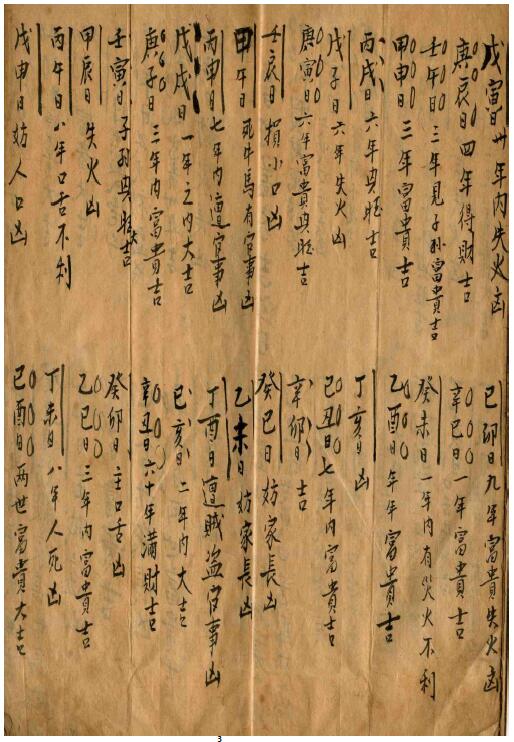 戊寅日卅年内失火凶
己卯日九年富貴失火凶
庚辰日四年得財吉
辛巳日一年富貴吉
壬午日三年見子孫富貴吉
癸未日一年内有災火不利
甲申日三年富貴吉
乙酉日年年富貴吉
丙戌日六年興旺吉
丁亥日凶
戊子日六年失火凶
己丑日七年内富貴吉
庚寅日六年富貴興旺吉
辛卯日吉
壬辰日損小口凶
癸巳日妨家長凶
甲午日死牛馬有官事凶
乙未日妨家長凶
丙申日七年内遭官事凶
丁酉日遭賊盗官事凶
戊戌日一年之内大吉
己亥日二年内大吉
庚子日三年内富貴吉
辛丑日六十年满財吉
壬寅日子孫興旺大吉
癸卯日主口舌凶
甲辰日失火凶
乙巳日三年内富貴吉
丙午日八年口舌不利
丁未日八年人死凶
戊申日妨人口凶
己酉日两世富貴大吉
3